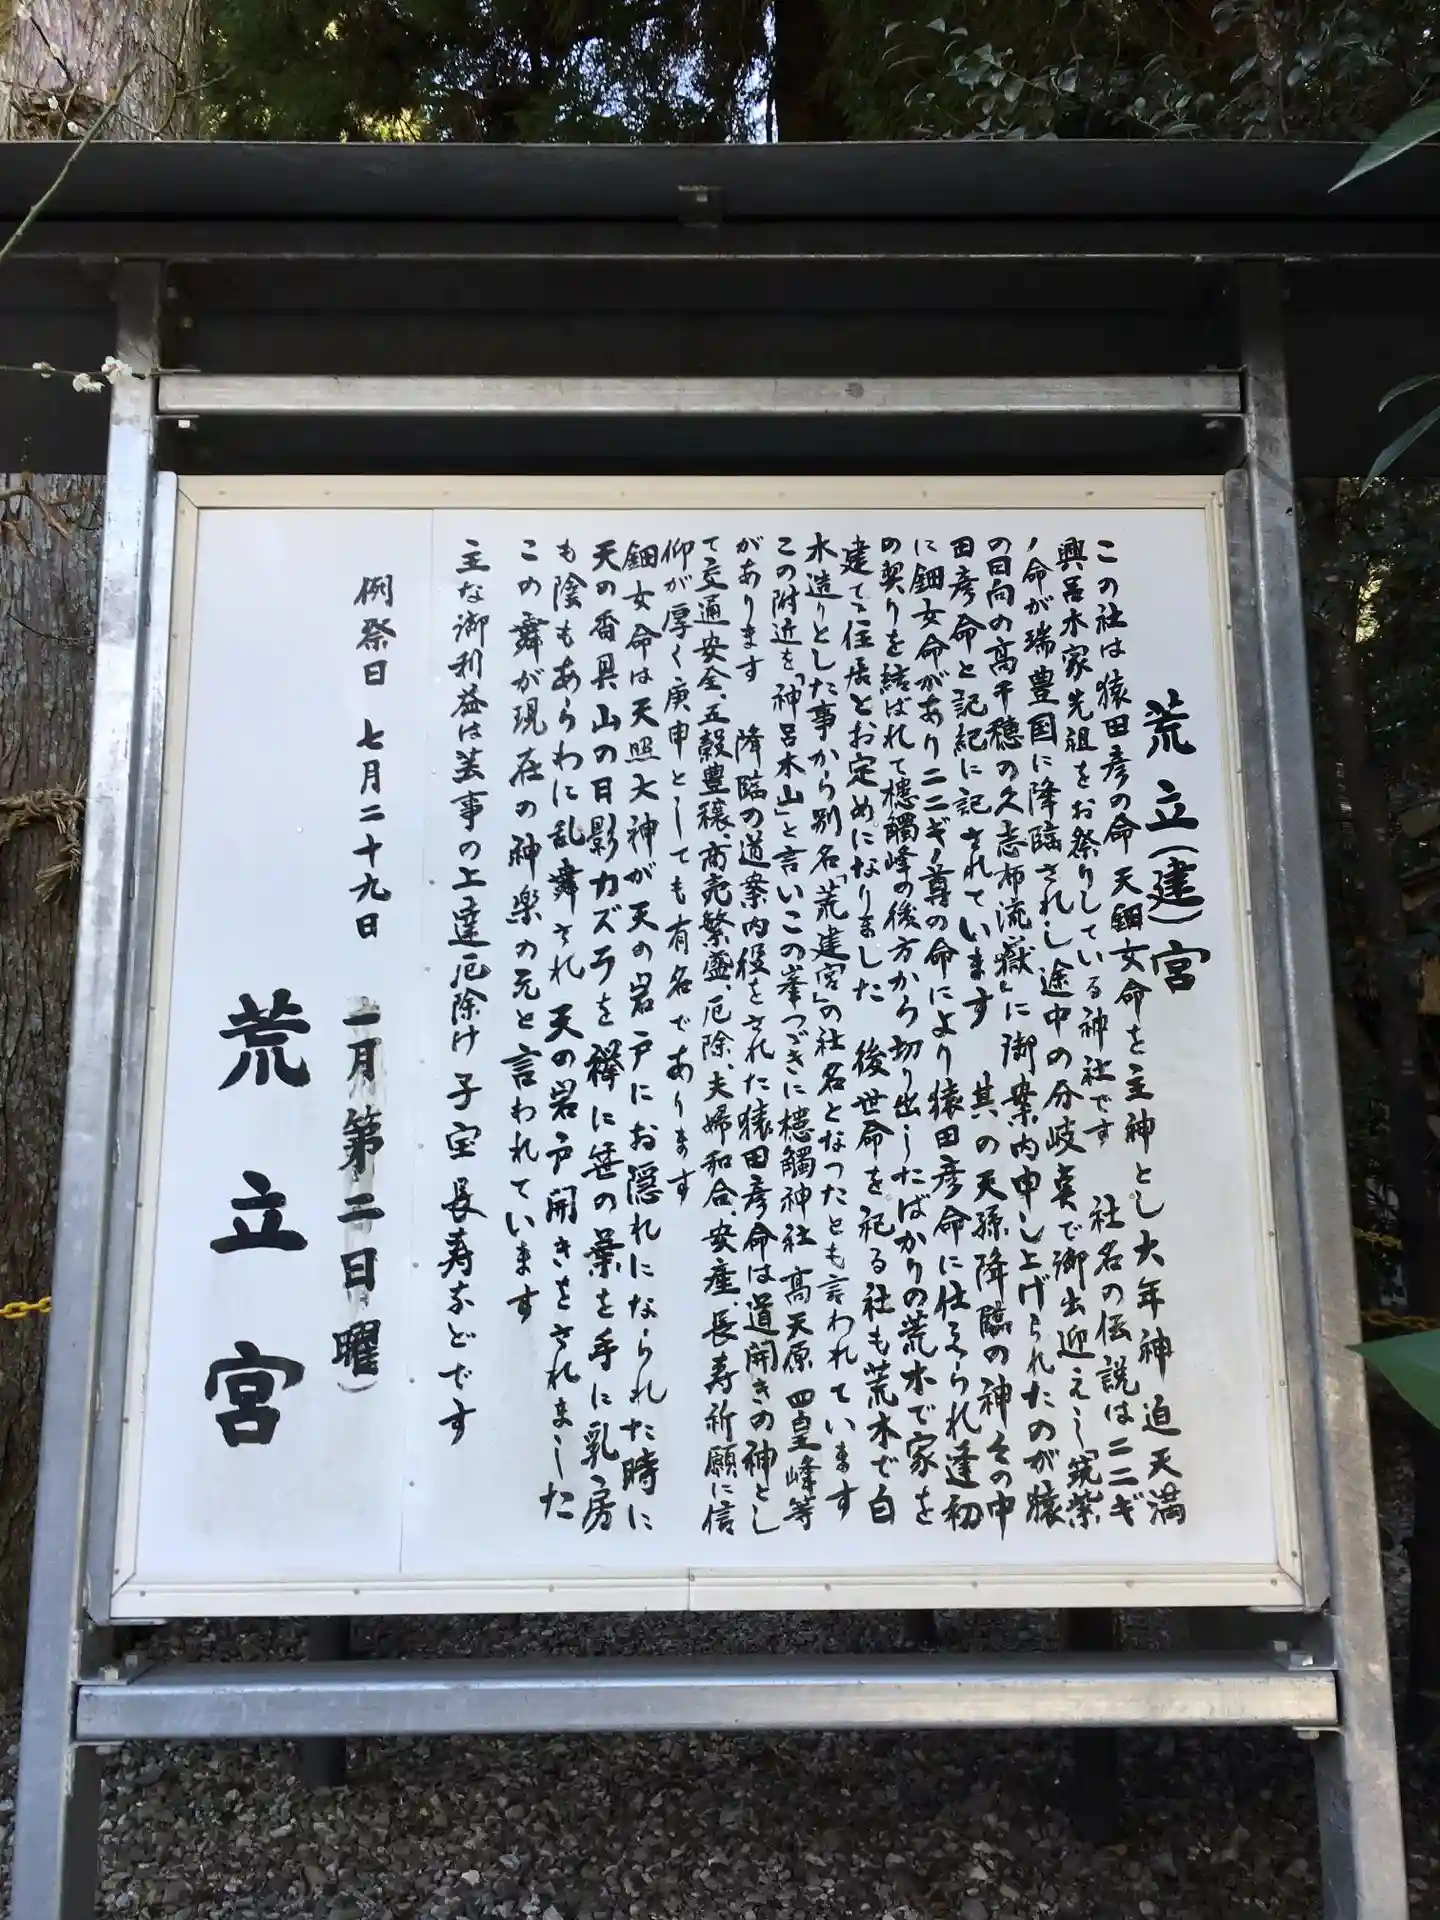 荒立(建)宮
この社は猿田彦の命 天鈿女命を主神とし大年神 迫天満
興呂木家先祖をお祭りしている神社です 社名の伝説はニニギ
ノ命が瑞豊国に降臨されし途中の分岐点で御出迎えし「筑紫
の日向の高千穂の久志布流嶽」に御案内申し上げられたのが猿
田彦命と記紀に記されています 其の天孫降臨の神々の中
に鈿女命がありニニギノ尊の命により猿田彦命に仕えられ逢初
の契りを結ばれて槵觸峰の後方から切り出したばかりの荒木で家を
建てて住居とお定めになりました 後世命を祀る社も荒木で白
木造りとした事から別名「荒建宮」の社名となったとも言われています
この附近を「神呂木山」と言いこの峯つづきに槵觸神社 高天原 四皇峰等
があります 降臨の道案内役をされた猿田彦命は道開きの神とし
て交通安全、五穀豊穣、商売繁盛、厄除、夫婦和合、安産、長寿祈願に信
仰が厚く庚申としても有名であります
鈿女命は天照大神が天の岩戸にお隠れになられた時に
天の香具山の日影カズラを襷に笹の葉を手に乳房
も陰もあらわに乱舞され 天の岩戸開きをされました
この舞が現在の神楽の元と言われています
主な御利益は芸事の上達厄除け 子宝 長寿などです
例祭日 七月二十九日 一月第二日曜)
荒立宮